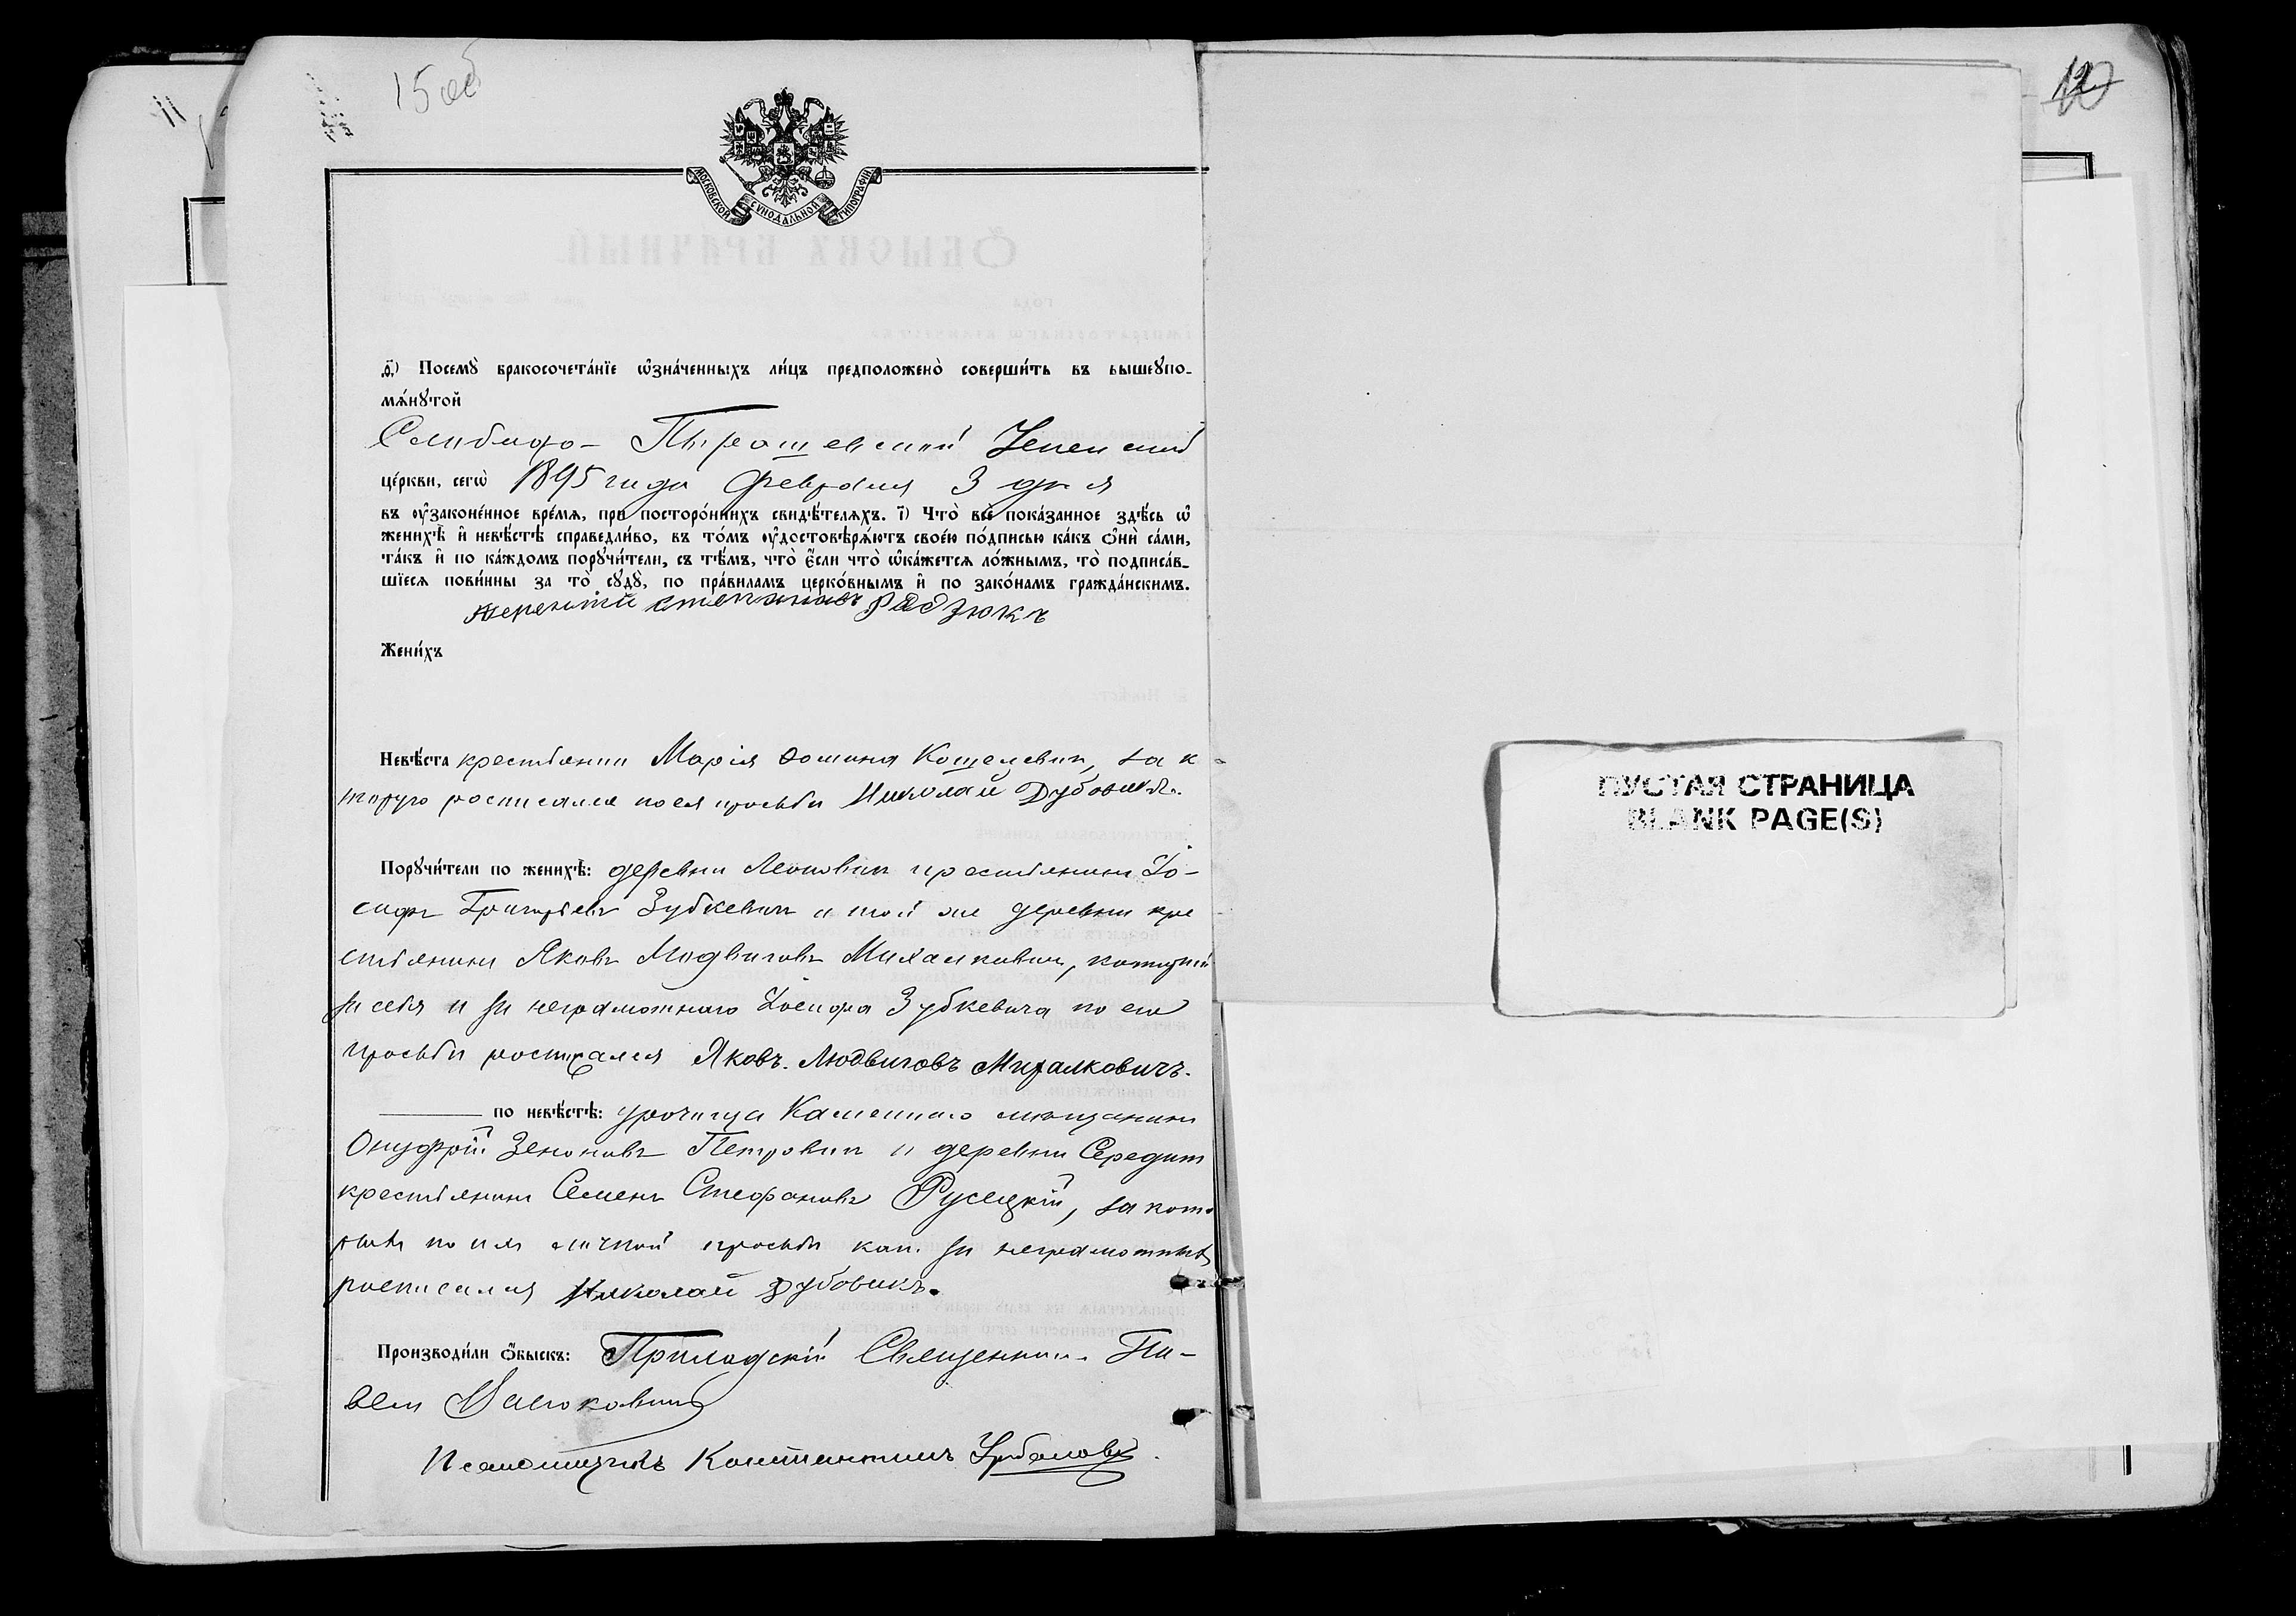 15 об
12
МОСКОВСКОЙ СѴНОДАЛЬНОЙ ТИПОГРАФІИ
д҃) Посемꙋ̀ бракосочета́нїе ѡ҆зна́ченныхъ ли́цъ предположено̀ соверши́ть въ вышеꙋпо-
мѧ́нꙋтой
Селибло- Пырашевской Успенской
це́ркви, сегѡ̀ 1895 года Февраля 3 дня
въ ᲂу҆законе́нное вре́мѧ, при посторо́ннихъ свидѣ́телѧхъ. і҃) Что̀ всѐ пока́занное здѣ́сь ѡ҆
женихѣ̀ и҆ невѣ́стѣ справедли́во, въ то́мъ ᲂу҆достовѣрѧ́ютъ свое́ю по́дписью ка́къ ѻ҆нѝ са́ми,
та́къ и҆ по ка́ждомъ порꙋчи́тели, съ тѣ́мъ, что̀ є҆́сли что̀ ѡ҆ка́жетсѧ ло́жнымъ, то̀ подписа́в-
шїесѧ пови́нны за то̀ сꙋдꙋ̀, по пра́виламъ церко́внымъ и҆ по зако́намъ гражда́нскимъ.
терентій степановъ Радзюкъ
Жени́хъ
Невѣ́ста крестьянка Марія Ѳомина Кошелевич, за к
торую росписался по ея просьбѣ Николай Дубовикъ.
Порꙋчи́тели по женихѣ̀: деревни Леонович крестьянинъ Іо-
сифъ Григорьевъ Зубкевич и той же деревни кре
стьянинъ Яковъ Людвиговъ Михалкович, который
за себя и за неграмотнаго Іосифа Зубкевича по его
просьбѣ росписался Яковъ. Людвиговъ Михалковичъ.
по невѣ́стѣ: урочища Каменнаго мѣщанинъ
Онуфрій Зеноновъ Петрович и деревни Середит
крестьянинъ Семенъ Стефановъ Русецкій, за кото
рыхъ по ихъ личной просьбѣ как. за неграмотныхъ
росписался Николай Дубовикъ.
Производи́ли ѻ҆́быскъ: Приходскій Священник Па-
вел
Псаломщикъ Константинъ Урбановъ.
ПУСТАЯ СТРАНИЦА
BLANK PAGE(S)